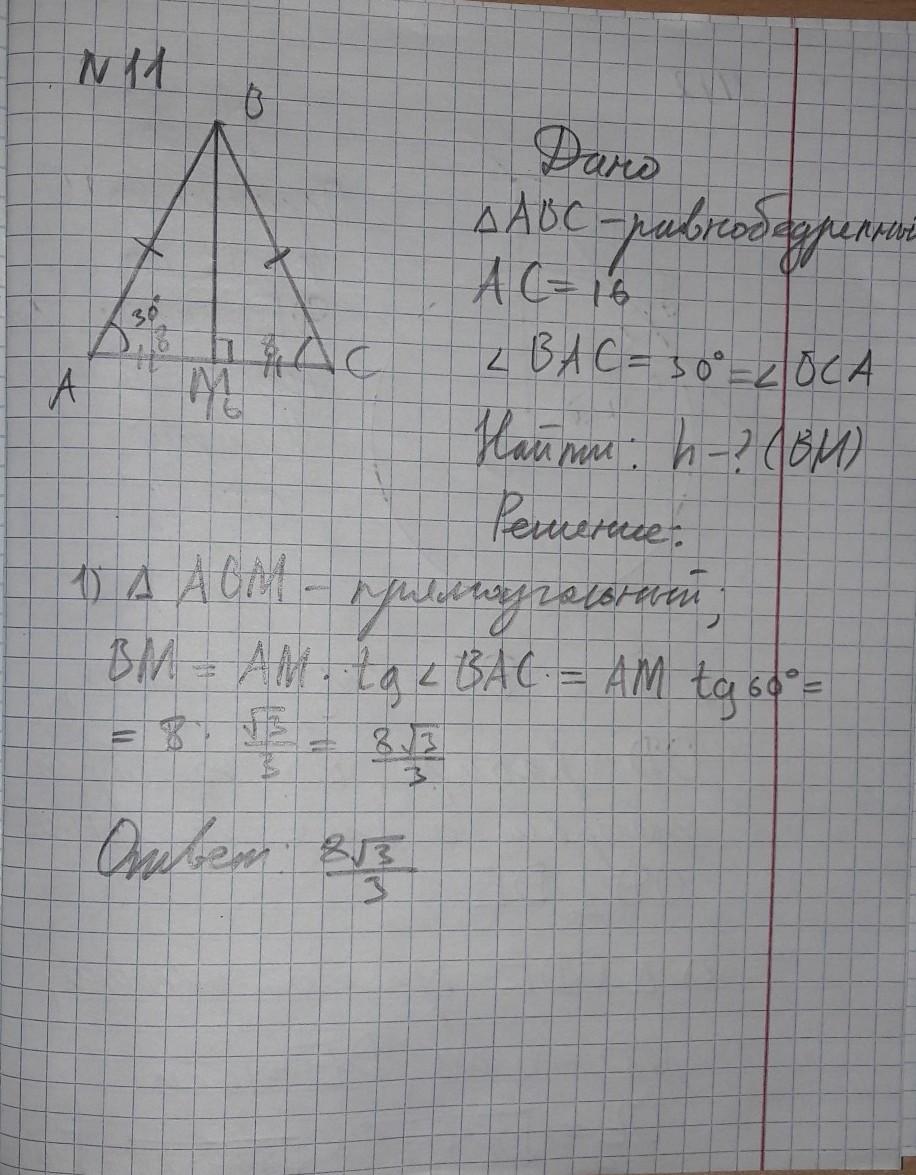 N 11
B
Дано
△ABC – равнобедренный
AC = 16
30°
8
8
A
M
C
16
∠BAC = 30° = ∠BCA
Найти: h – ? (BM)
Решение:
1) △ ABM – прямоугольный;
BM = AM · tg ∠BAC · = AM tg 60° =
= 8 · √3/3 = 8√3/3
Ответ: 8√3/3